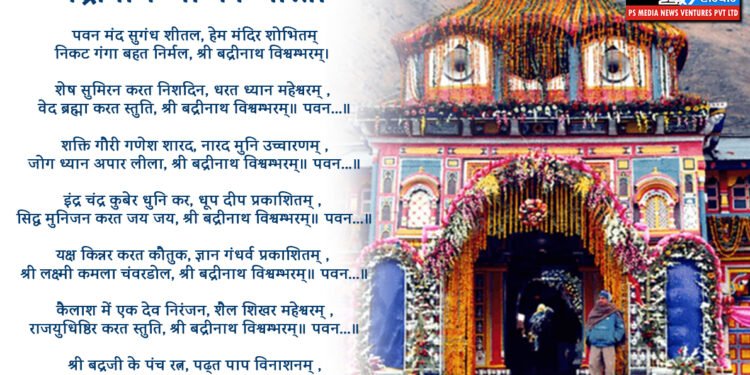 PS MEDIA NEWS VENTURES PVT LTD
पवन मंद सुगंध शीतल, हेम मंदिर शोभितम्
निकट गंगा बहत निर्मल, श्री बद्रीनाथ विश्वम्भरम्।
शेष सुमिरन करत निशदिन, धरत ध्यान महेश्वरम् ,
वेद ब्रह्मा करत स्तुति, श्री बद्रीनाथ विश्वम्भरम्॥ पवन...॥
शक्ति गौरी गणेश शारद, नारद मुनि उच्चारणम् ,
जोग ध्यान अपार लीला, श्री बद्रीनाथ विश्वम्भरम्॥ पवन...॥
इंद्र चंद्र कुबेर धुनि कर, धूप दीप प्रकाशितम् ,
सिद्व मुनिजन करत जय जय, श्री बद्रीनाथ विश्वम्भरम्॥ पवन...॥
यक्ष किन्नर करत कौतुक, ज्ञान गंधर्व प्रकाशितम् ,
श्री लक्ष्मी कमला चंवरडोल, श्री बद्रीनाथ विश्वम्भरम्॥ पवन...॥
कैलाश में एक देव निरंजन, शैल शिखर महेश्वरम् ,
राजयुधिष्ठिर करत स्तुति, श्री बद्रीनाथ विश्वम्भरम्॥ पवन...॥
श्री बद्रजी के पंच रत्न, पढ्त पाप विनाशनम् ,